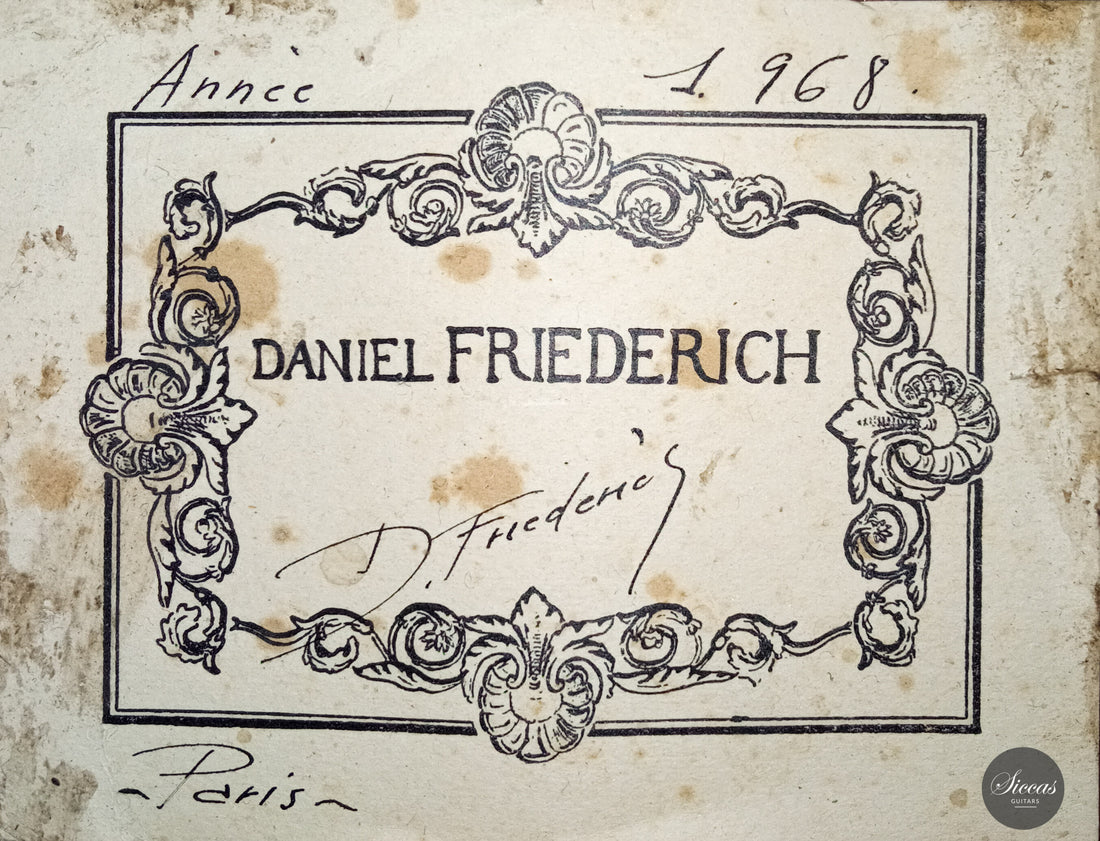 Année 1.968.
DANIEL FRIEDERICH
D. Friederich
~ Paris ~
Siccas
GUITARS